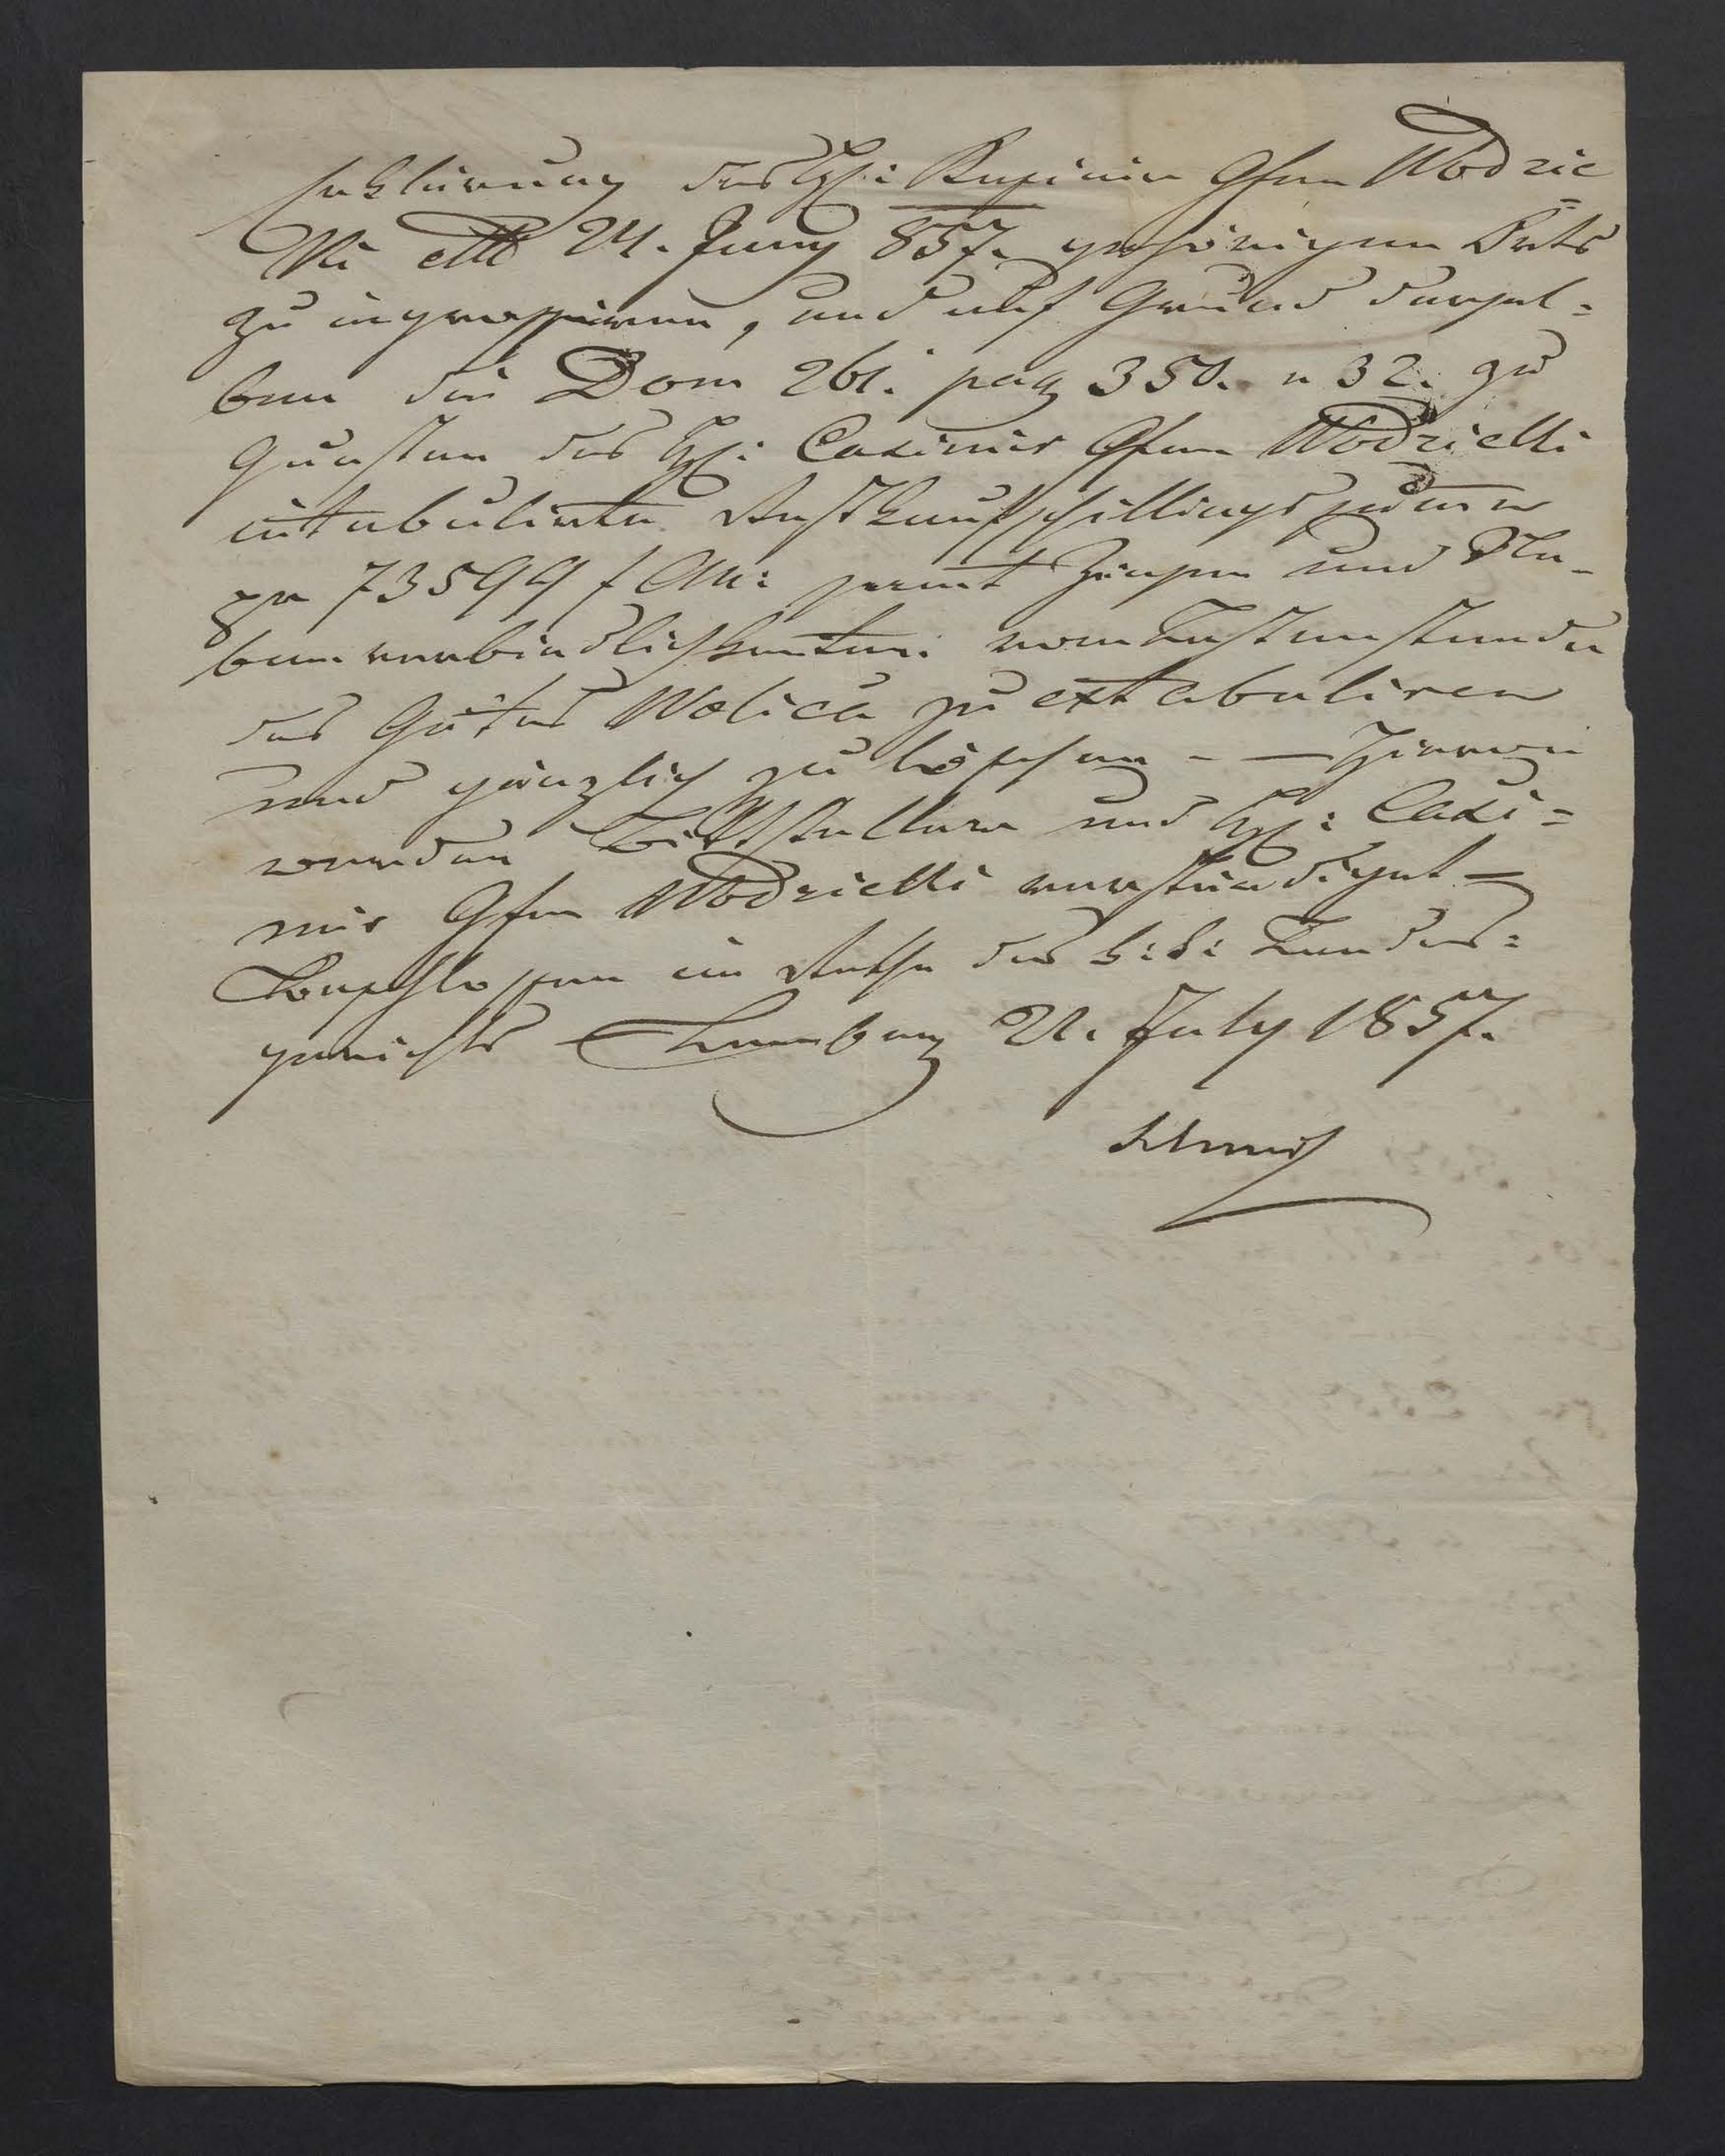 Erklärung des H: Kasimir Gfen Wodzic=
ki dtto 24. Juny 857. gehörigen Orts
zu ingrossiren, und auf Grund dersel=
ben die Dom 261. pag 350. n 32. zu
Gunsten des H: Casimir Gfen Wodzicki
intabulirte Restkaufschillingssumme
pr 73599 f CM: samt Zinsen und Ne-
benverbindlichkeiten vom Lastenstande
des Gutes Wolica zu extabuliren
und gänzlich zu löschen - — Hievon
werden Bittsteller und H: Casi=
mir Gfen Wodzicki verständiget —
Beschlossen im Rathe des k: k: Landes=
gerichts Lemberg 21. July 1857.